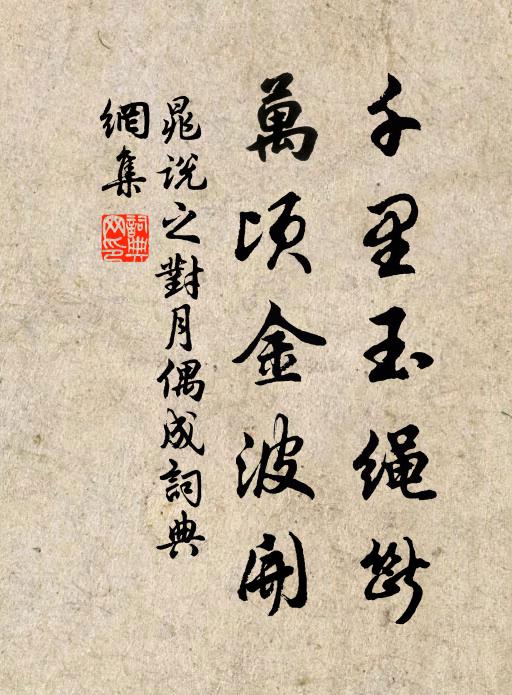 千里玉绳断
萬頃金波開
晁説之對月偶成詞典
網集
詞典网印